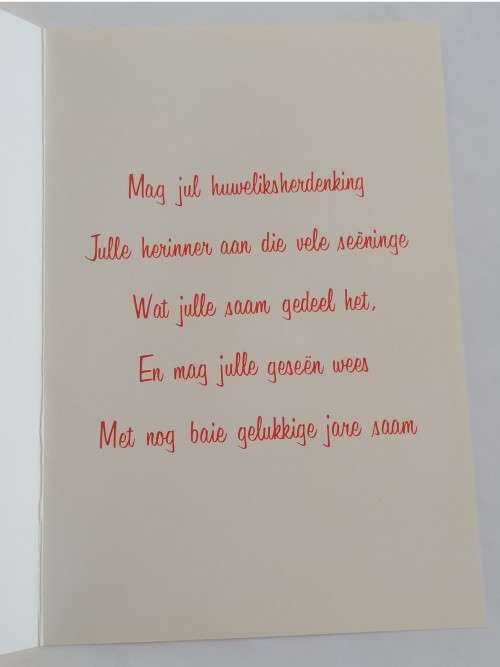 Mag jul huweliksherdenking
Julle herinner aan die vele seëninge
Wat julle saam gedeel het,
En mag julle geseën wees
Met nog baie gelukkige jare saam